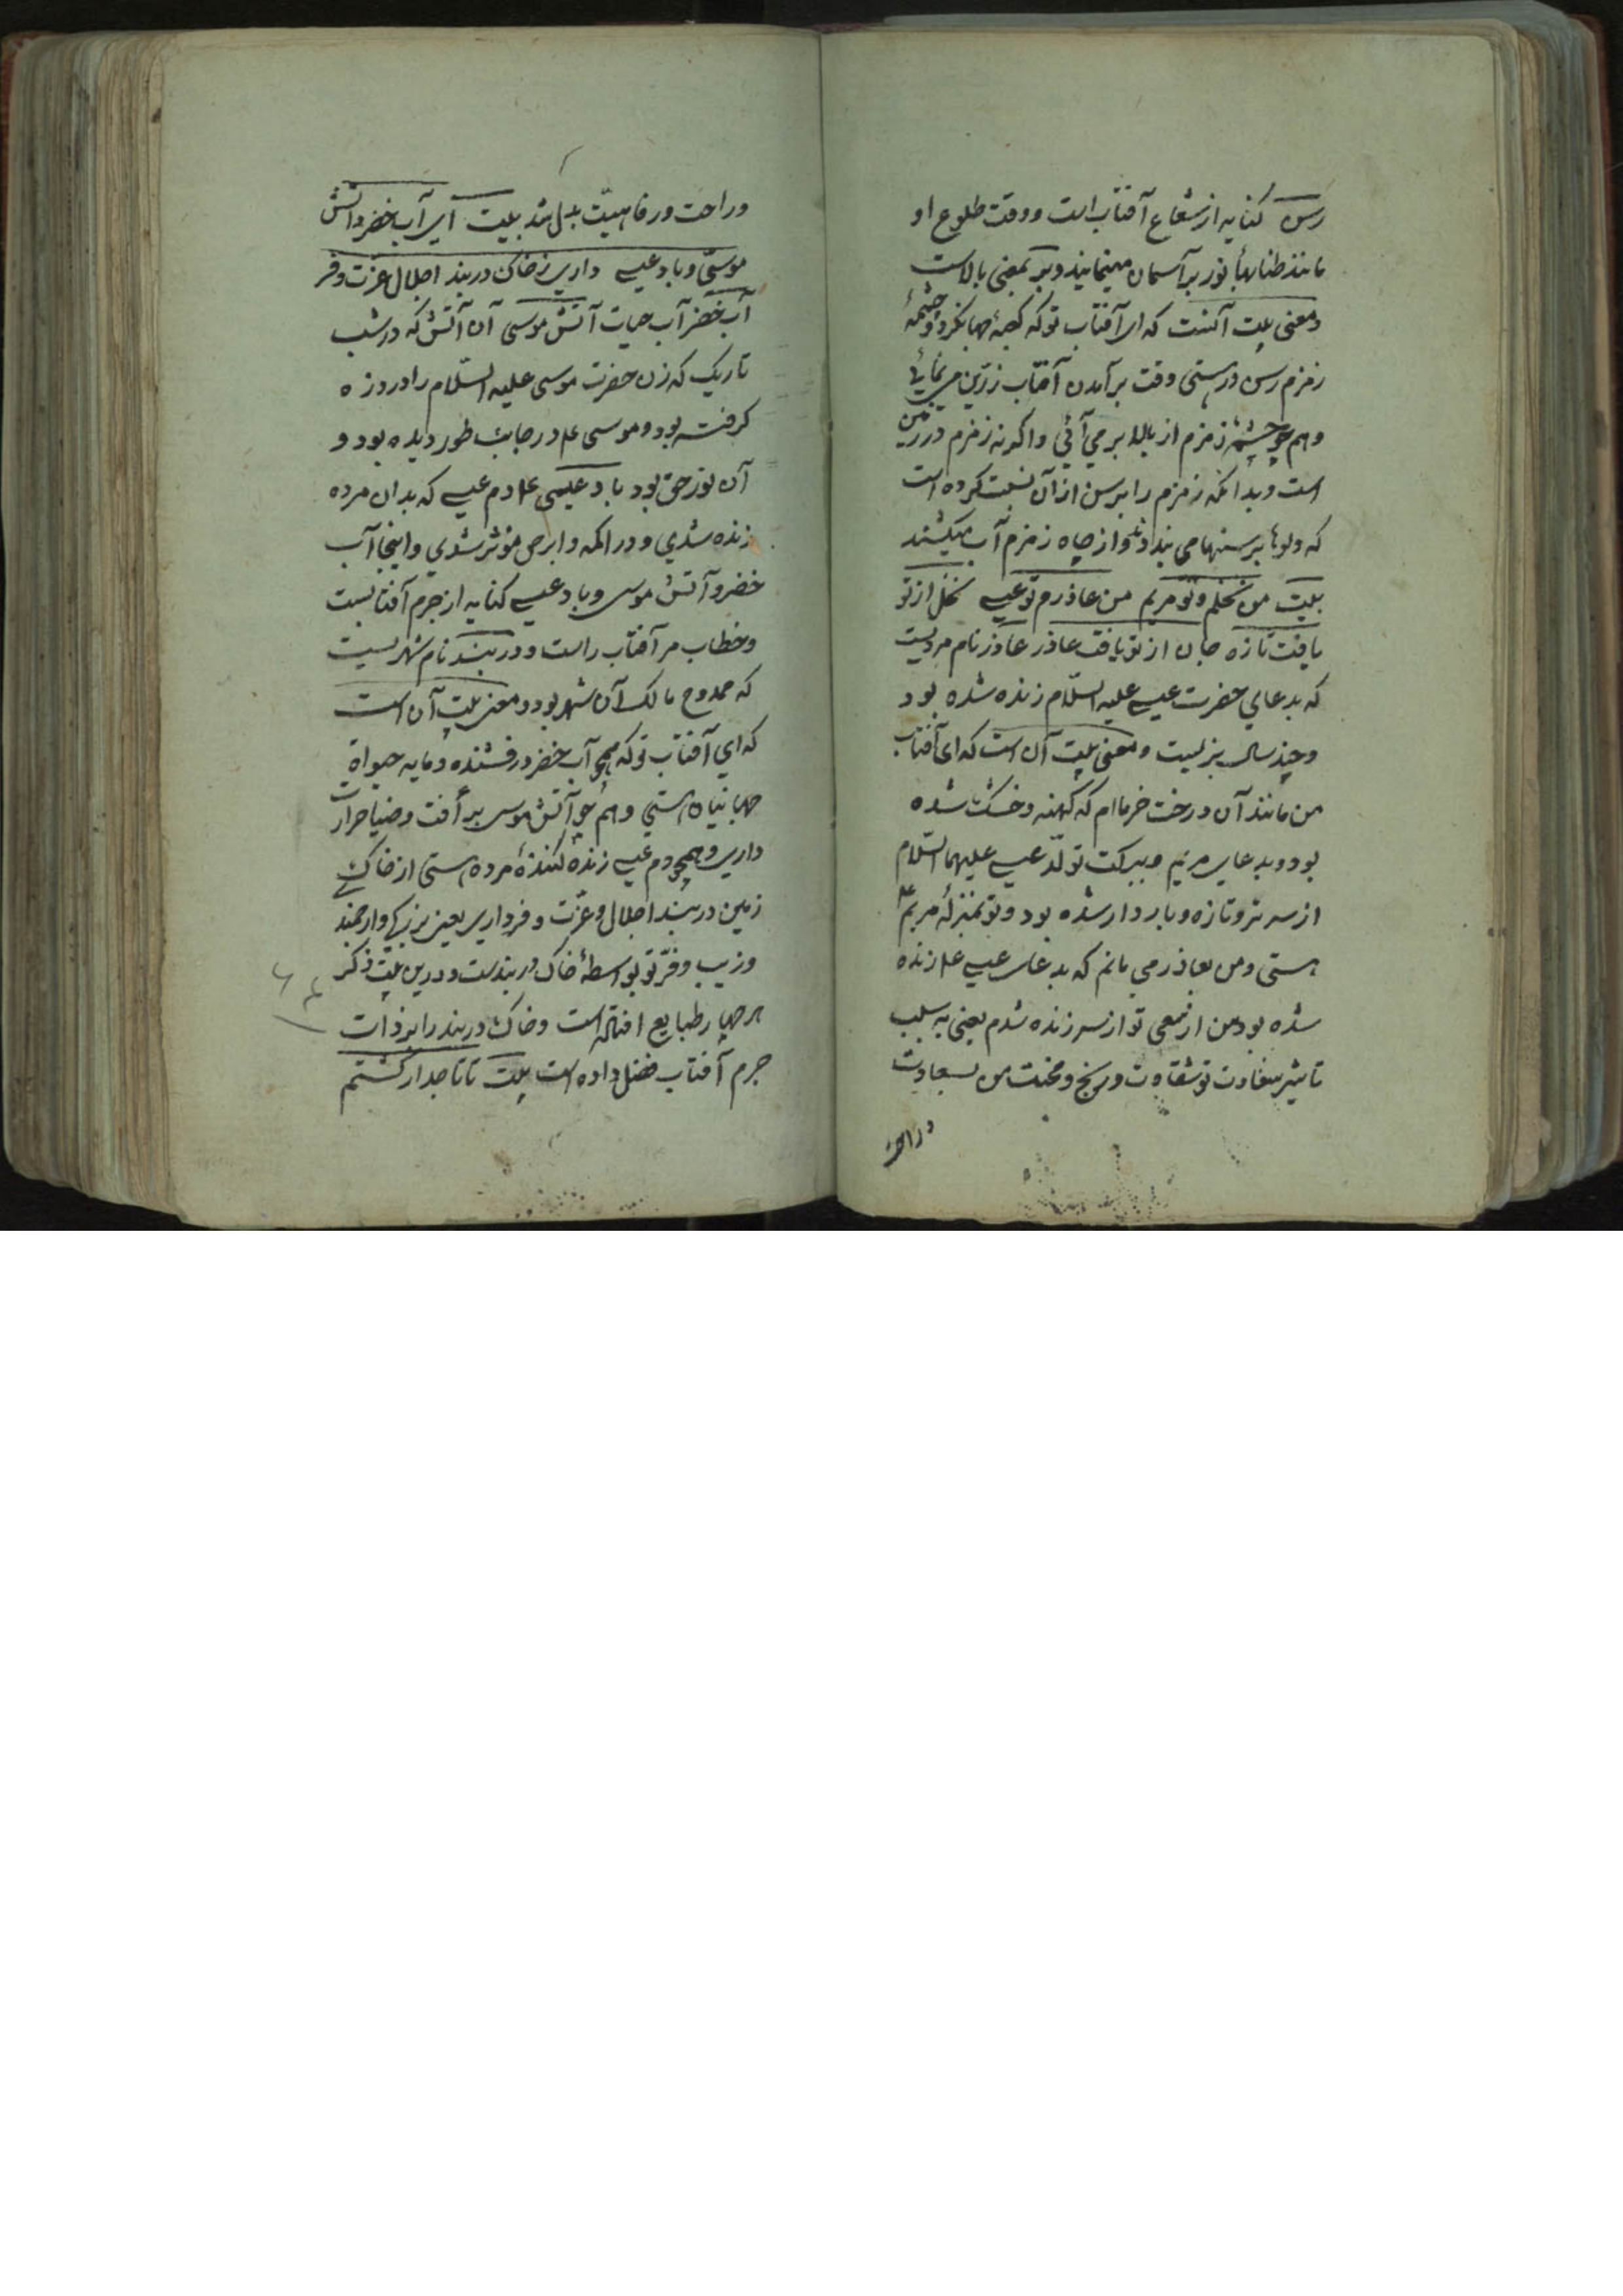 رسن کنایه از شعاع آفتاب است و وقت طلوع او
مانند طنابهاء نور بر آسمان مینمایند و بر بمعنی بالاست
و معنی بیت آنست که ای آفتاب تو که کعبهٔ جهانگرد و چشمهٔ
زمزم رسن ور هستی وقت برآمدن آفتاب زرّین می نمائی
و هم چو چشمهٔ زمزم از بالا بر می آئی و اکرنه زمزم در زمین
است و بدانکه زمزم را برسن از آن نسبت کرده است
که دلوها برسنها می بندند و از چاه زمزم آب میکشند
بیت من نخلم و تو مریم من عاذرم تو عیسی نخل از تو
یافت تازه جان از تو یافت عاذر عاذر نام مردیست
که بدعای حضرت عیسی علیه السّلام زنده شده بود
و چند سال بزیست و معنی بیت آن است که ای آفتاب
من مانند آن درخت خرماام که کهنه و خشک شده
بود و بدعای مریم و ببرکت تولّد عیسی علیهما السّلام
از سر تر و تازه و باردار شده بود و تو بمنزلهٔ مریم ع
هستی و من بعاذر می مانم که بدعای عیسی ع م زنده
شده بود من از سعی تو از سر زنده شدم یعنی به سبب
تاثیر سعادت تو شقاوت و رنج و محنت من بسعادت
و راحت
و راحت و رفاهیّت بدل شد بیت ای آب خضر و آتش
موسیٰ و باد عیسی داری ز خاک دربند اجلال عزّت و فر
آب خضر آب حیات آتش موسی آن آتش که در شب
تاریک که زن حضرت موسی علیه السّلام را درد زه
کرفته بود و موسی ع م در جانب طور دیده بود و
آن نور حق بود باد عیسی ع م دم عیسی که بدان مرده
زنده شدی و در اکمه و ابرص مؤثر شدی و اینجا آب
خضر و آتش موسی و باد عیسی کنایه از جرم آفتابست
و خطاب مر آفتاب راست و دربند نام شهریست
که ممدوح مالک آن شهر بود و معنی بیت آن است
که ای آفتاب تو که همچو آب خضر درفشنده و مایه حیوٰة
جهانیان هستی و هم چو آتش موسی بر أفت و ضیا حرارت
داری و همچو دم عیسی زنده کنندهٔ مرده هستی از خاک
زمین دربند اجلال و عزّت و فر داری یعنی بزرکی و ارجمندی
و زیب و فرّ تو بواسطهٔ خاک دربندست و درین بیت ذکر
هر چهار طبایع افتاده است و خاک دربند را بر ذات
جرم آفتاب فضل داده است بیت تا تاجدار کشتم